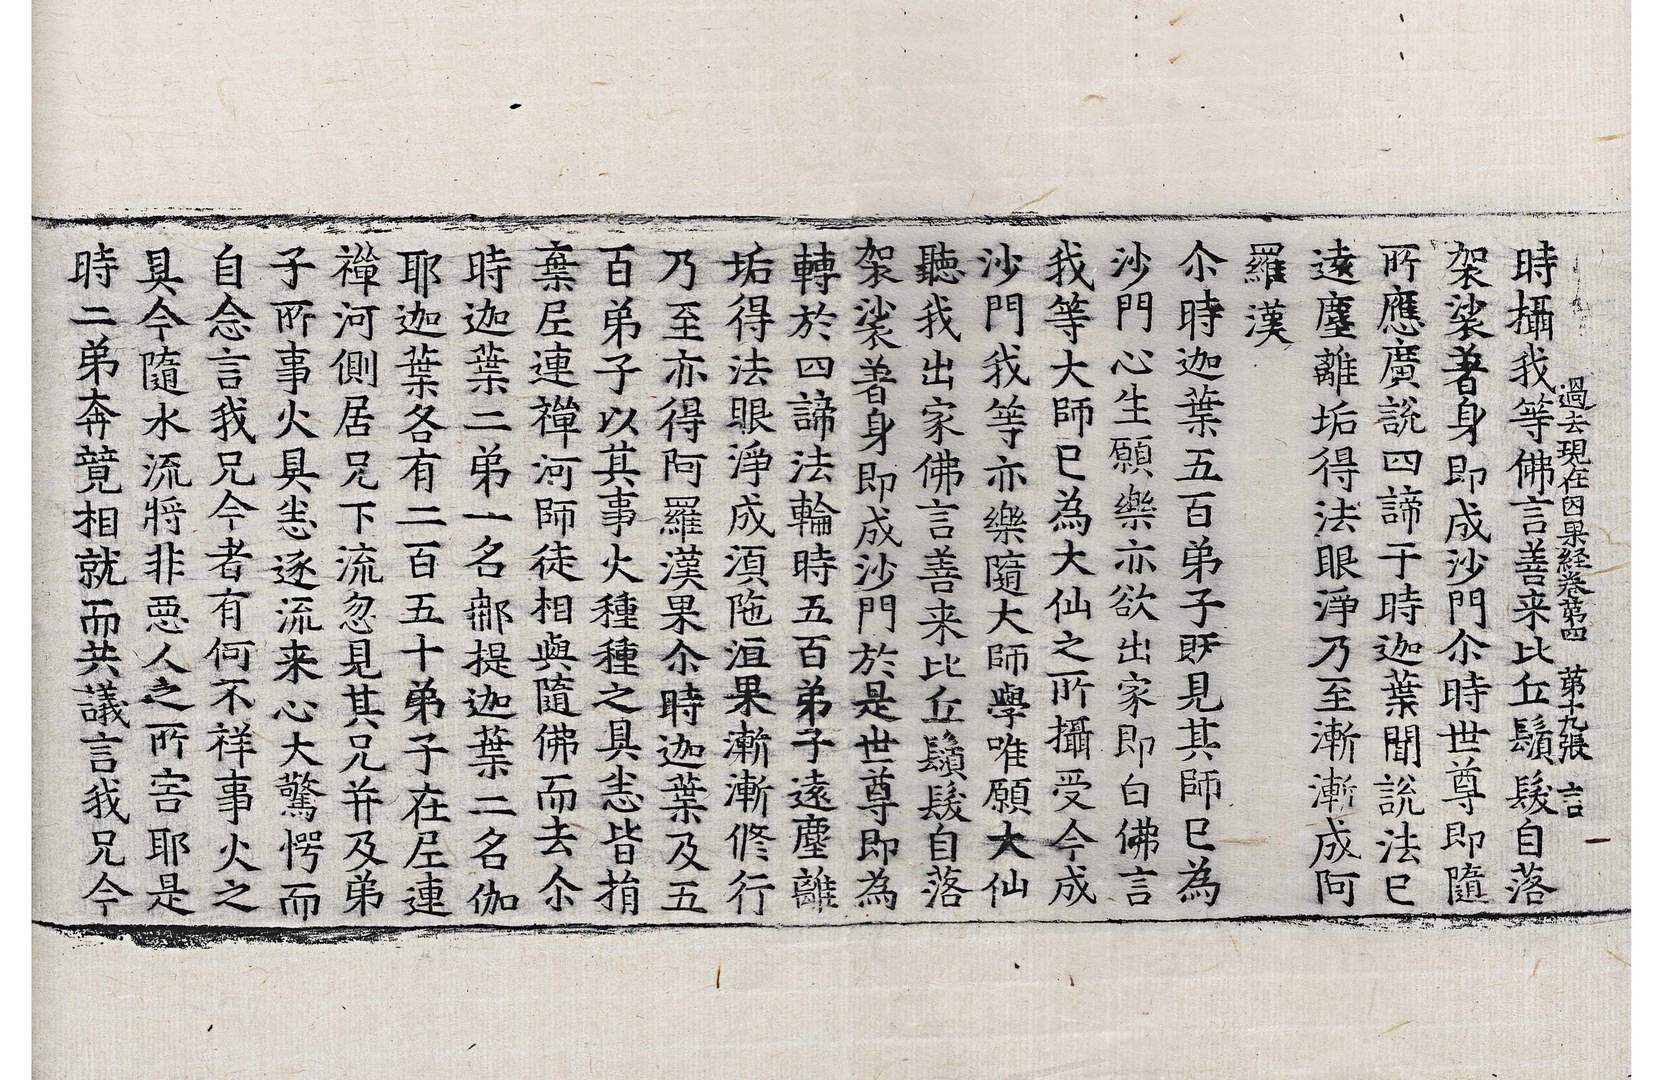 過去現在因果経卷第四　第十九張　言
時攝我等佛言善来比丘鬚髮自落
袈裟著身即成沙門尒時世尊即隨
所應廣說四諦于時迦葉聞說法已
遠塵離垢得法眼淨乃至漸漸成阿
羅漢
尒時迦葉五百弟子旣見其師已為
沙門心生願樂亦欲出家即白佛言
我等大師已為大仙之所攝受今成
沙門我等亦樂隨大師學唯願大仙
聽我出家佛言善来比丘鬚髮自落
袈裟著身即成沙門於是世尊即為
轉於四諦法輪時五百弟子遠塵離
垢得法眼淨成湏陁洹果漸漸修行
乃至亦得阿羅漢果尒時迦葉及五
百弟子以其事火種種之具悉皆捐
棄𡰱連禪河師徒相與隨佛而去尒
時迦葉二弟一名那提迦葉二名伽
耶迦葉各有二百五十弟子在𡰱連
禪河側居兄下流忽見其兄并及弟
子所事火具悉逐流来心大驚愕而
自念言我兄今者有何不祥事火之
具今隨水流將非惡人之所害耶是
時二弟奔競相就而共議言我兄今